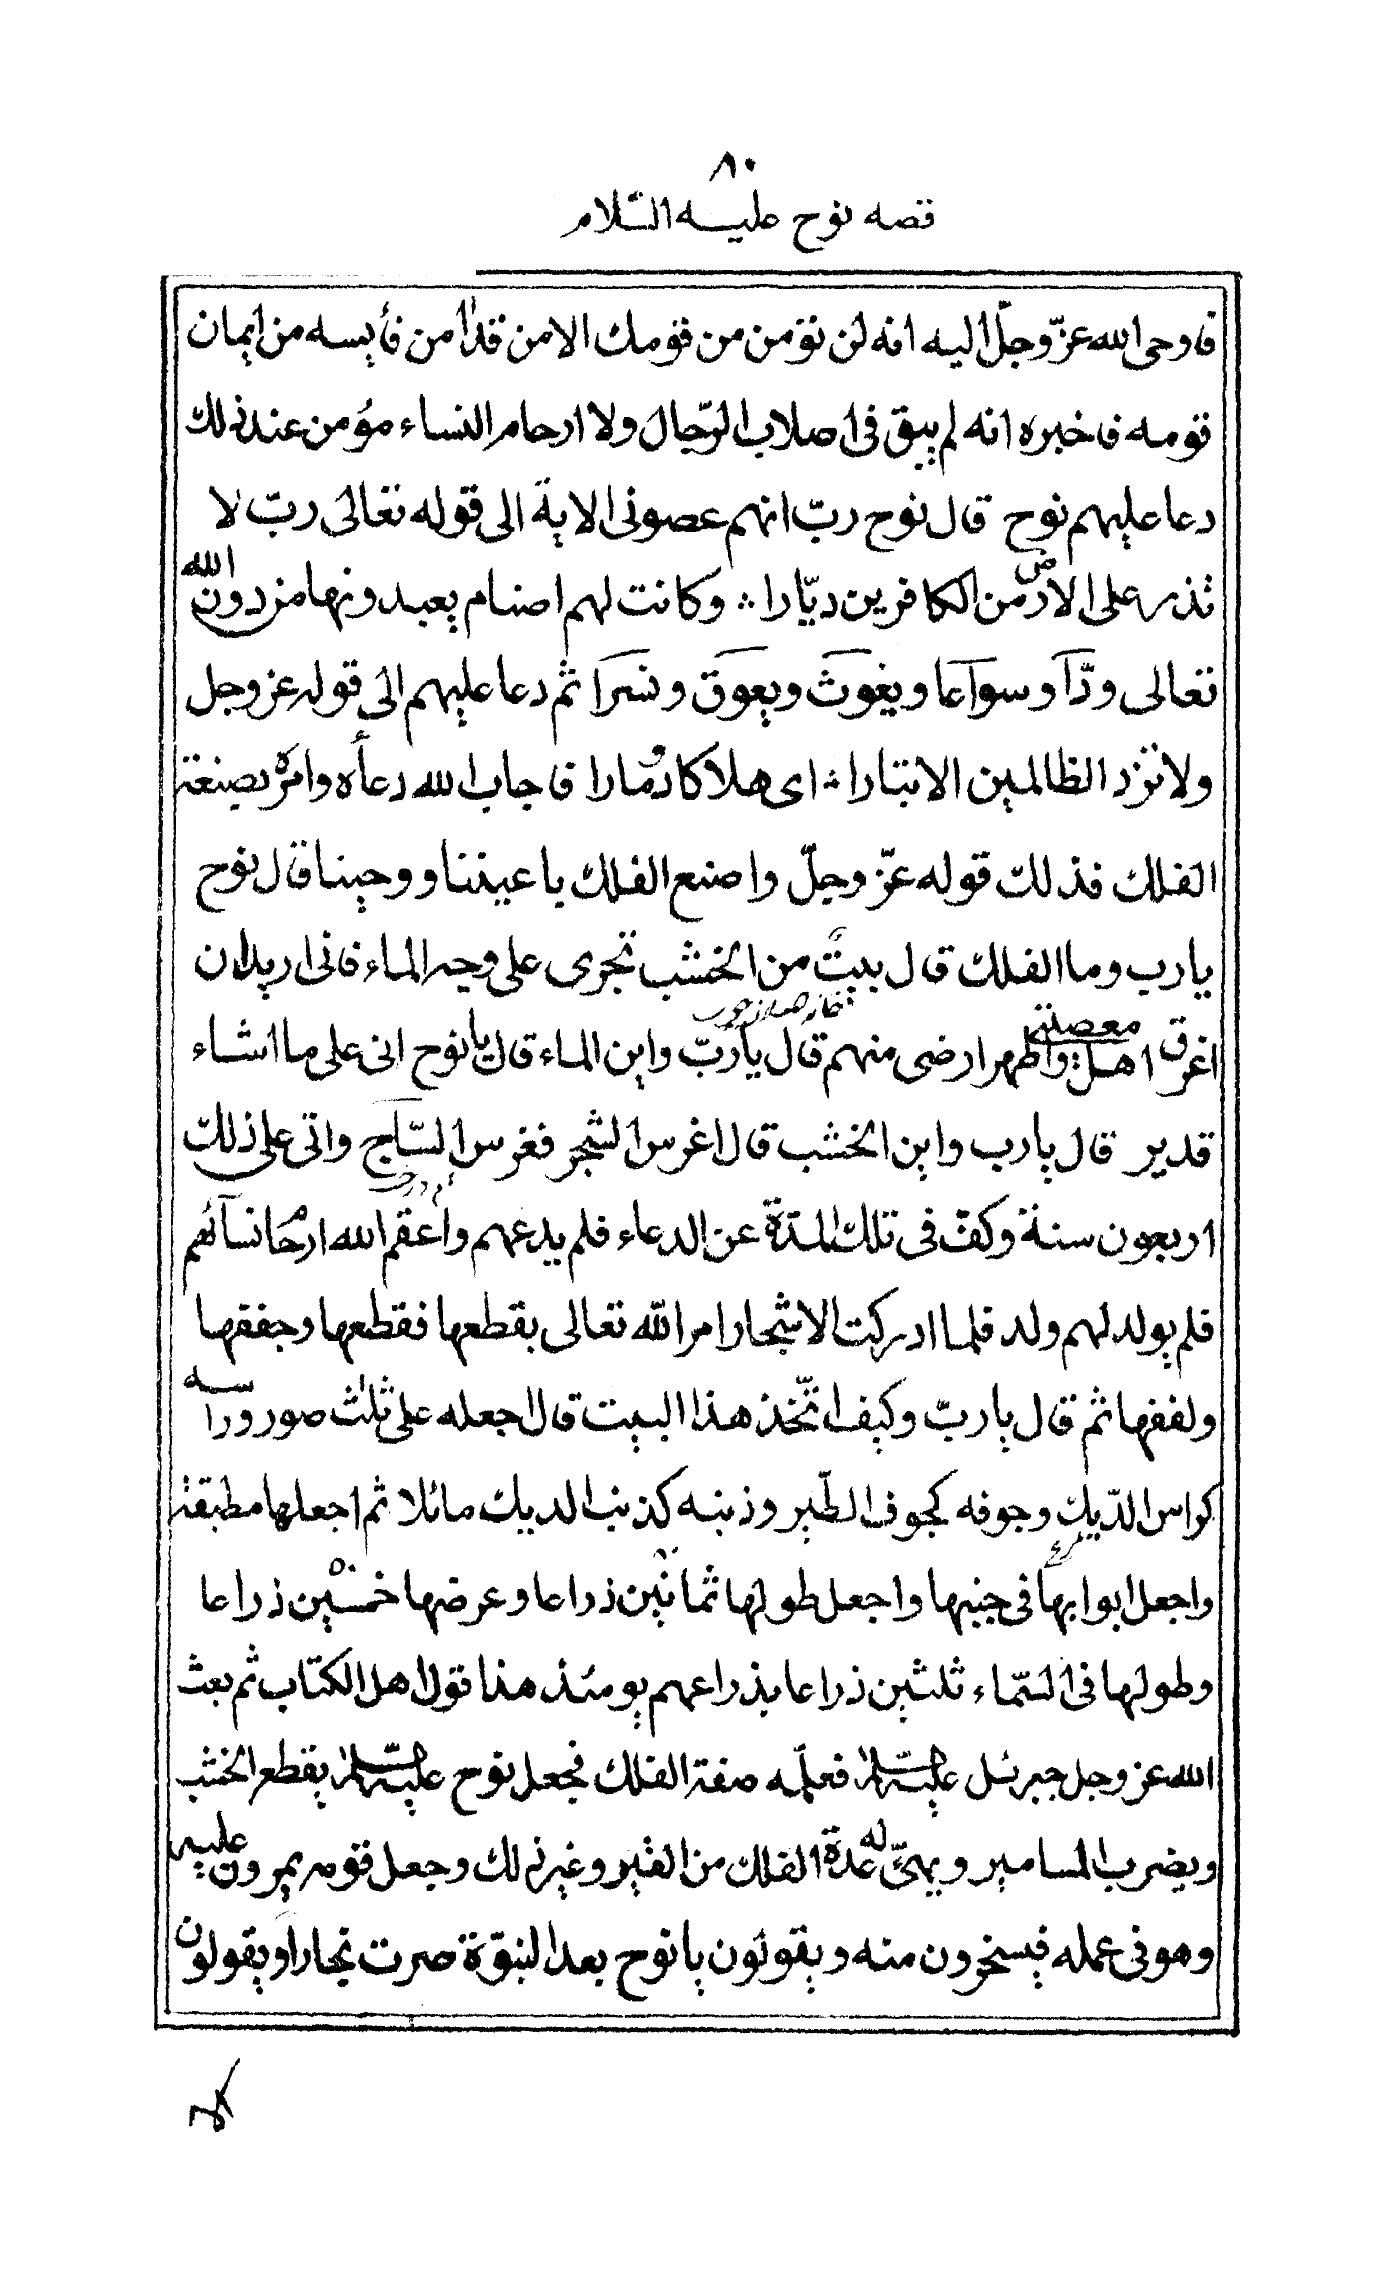 ٨٠
قصه نوح عليه السّلام
فاوحى الله عزّ وجلّ اليه انه لن نؤمن من قومك الا من قد اٰمن فأيسه من ايمان
قومه فاخبره انه لم يبق فى اصلاب الرّجال ولا ارحام النساء مؤمن عند ذلك
دعا عليهم نوح قال نوح ربّ انهم عصونى الاية الى قوله تعالى ربّ لا
تذر على الارض من الكافرين ديّارا ∴ وكانت لهم اصنام يعبدونها من دون الله
تعالى ودّآ وسواعا ويغوث ويعوق ونسرا ثم دعا عليهم الى قوله عز وجل
ولا تزد الظالمين الا تبارا ∴ اى هلاكا ودمارا فاجاب الله دعأه وامره بصنعة
الفلك فذلك قوله عزّ وجلّ واصنع الفلك باعيننا ووحينا قال نوح
يارب وما الفلك قال بيت من الخشب تجرى على وجه الماء فانى اريد ان
اغرق اهل معصيتى واطهر ارضى منهم قال ياربّ واين الماء قال يا نوح انى على ما اشاء
قدير قال يارب واين الخشب قال اغرس الشجر فغرس السّاج واتى على ذلك
اربعون سنة وكفّ فى تلك المدّة عن الدعاء فلم يدعهم واعقم الله ارحام نسآئهم
فلم يولد لهم ولد فلما ادركت الاشجار امر الله تعالى بقطعها فقطعها وجففها
ولففها ثم قال ياربّ وكيف اتّخذ هذا البيت قال اجعله على ثلٰث صور وراسه
كراس الدّيك وجوفه كجوف الطّير وذنبه كذنب الديك مائلا ثم اجعلها مطبقة
واجعل ابوابها فى جنبها واجعل طولها ثمانين ذراعا وعرضها خمسين ذراعا
وطولها فى السّماء ثلثين ذراعا بذراعهم يومئذ هذا قول اهل الكتاب ثم بعث
الله عز وجل جبرئيل عليه السّلام فعلّمه صفة الفلك فجعل نوح عليه السّلام يقطع الخشب
ويضرب المسامير ويهيّئ له عدة الفلك من القير وغير ذلك وجعل قومه يمرون عليه
وهو فى عمله فيسخرون منه ويقولون يا نوح بعد النبوّة صرت نجارا ويقولون